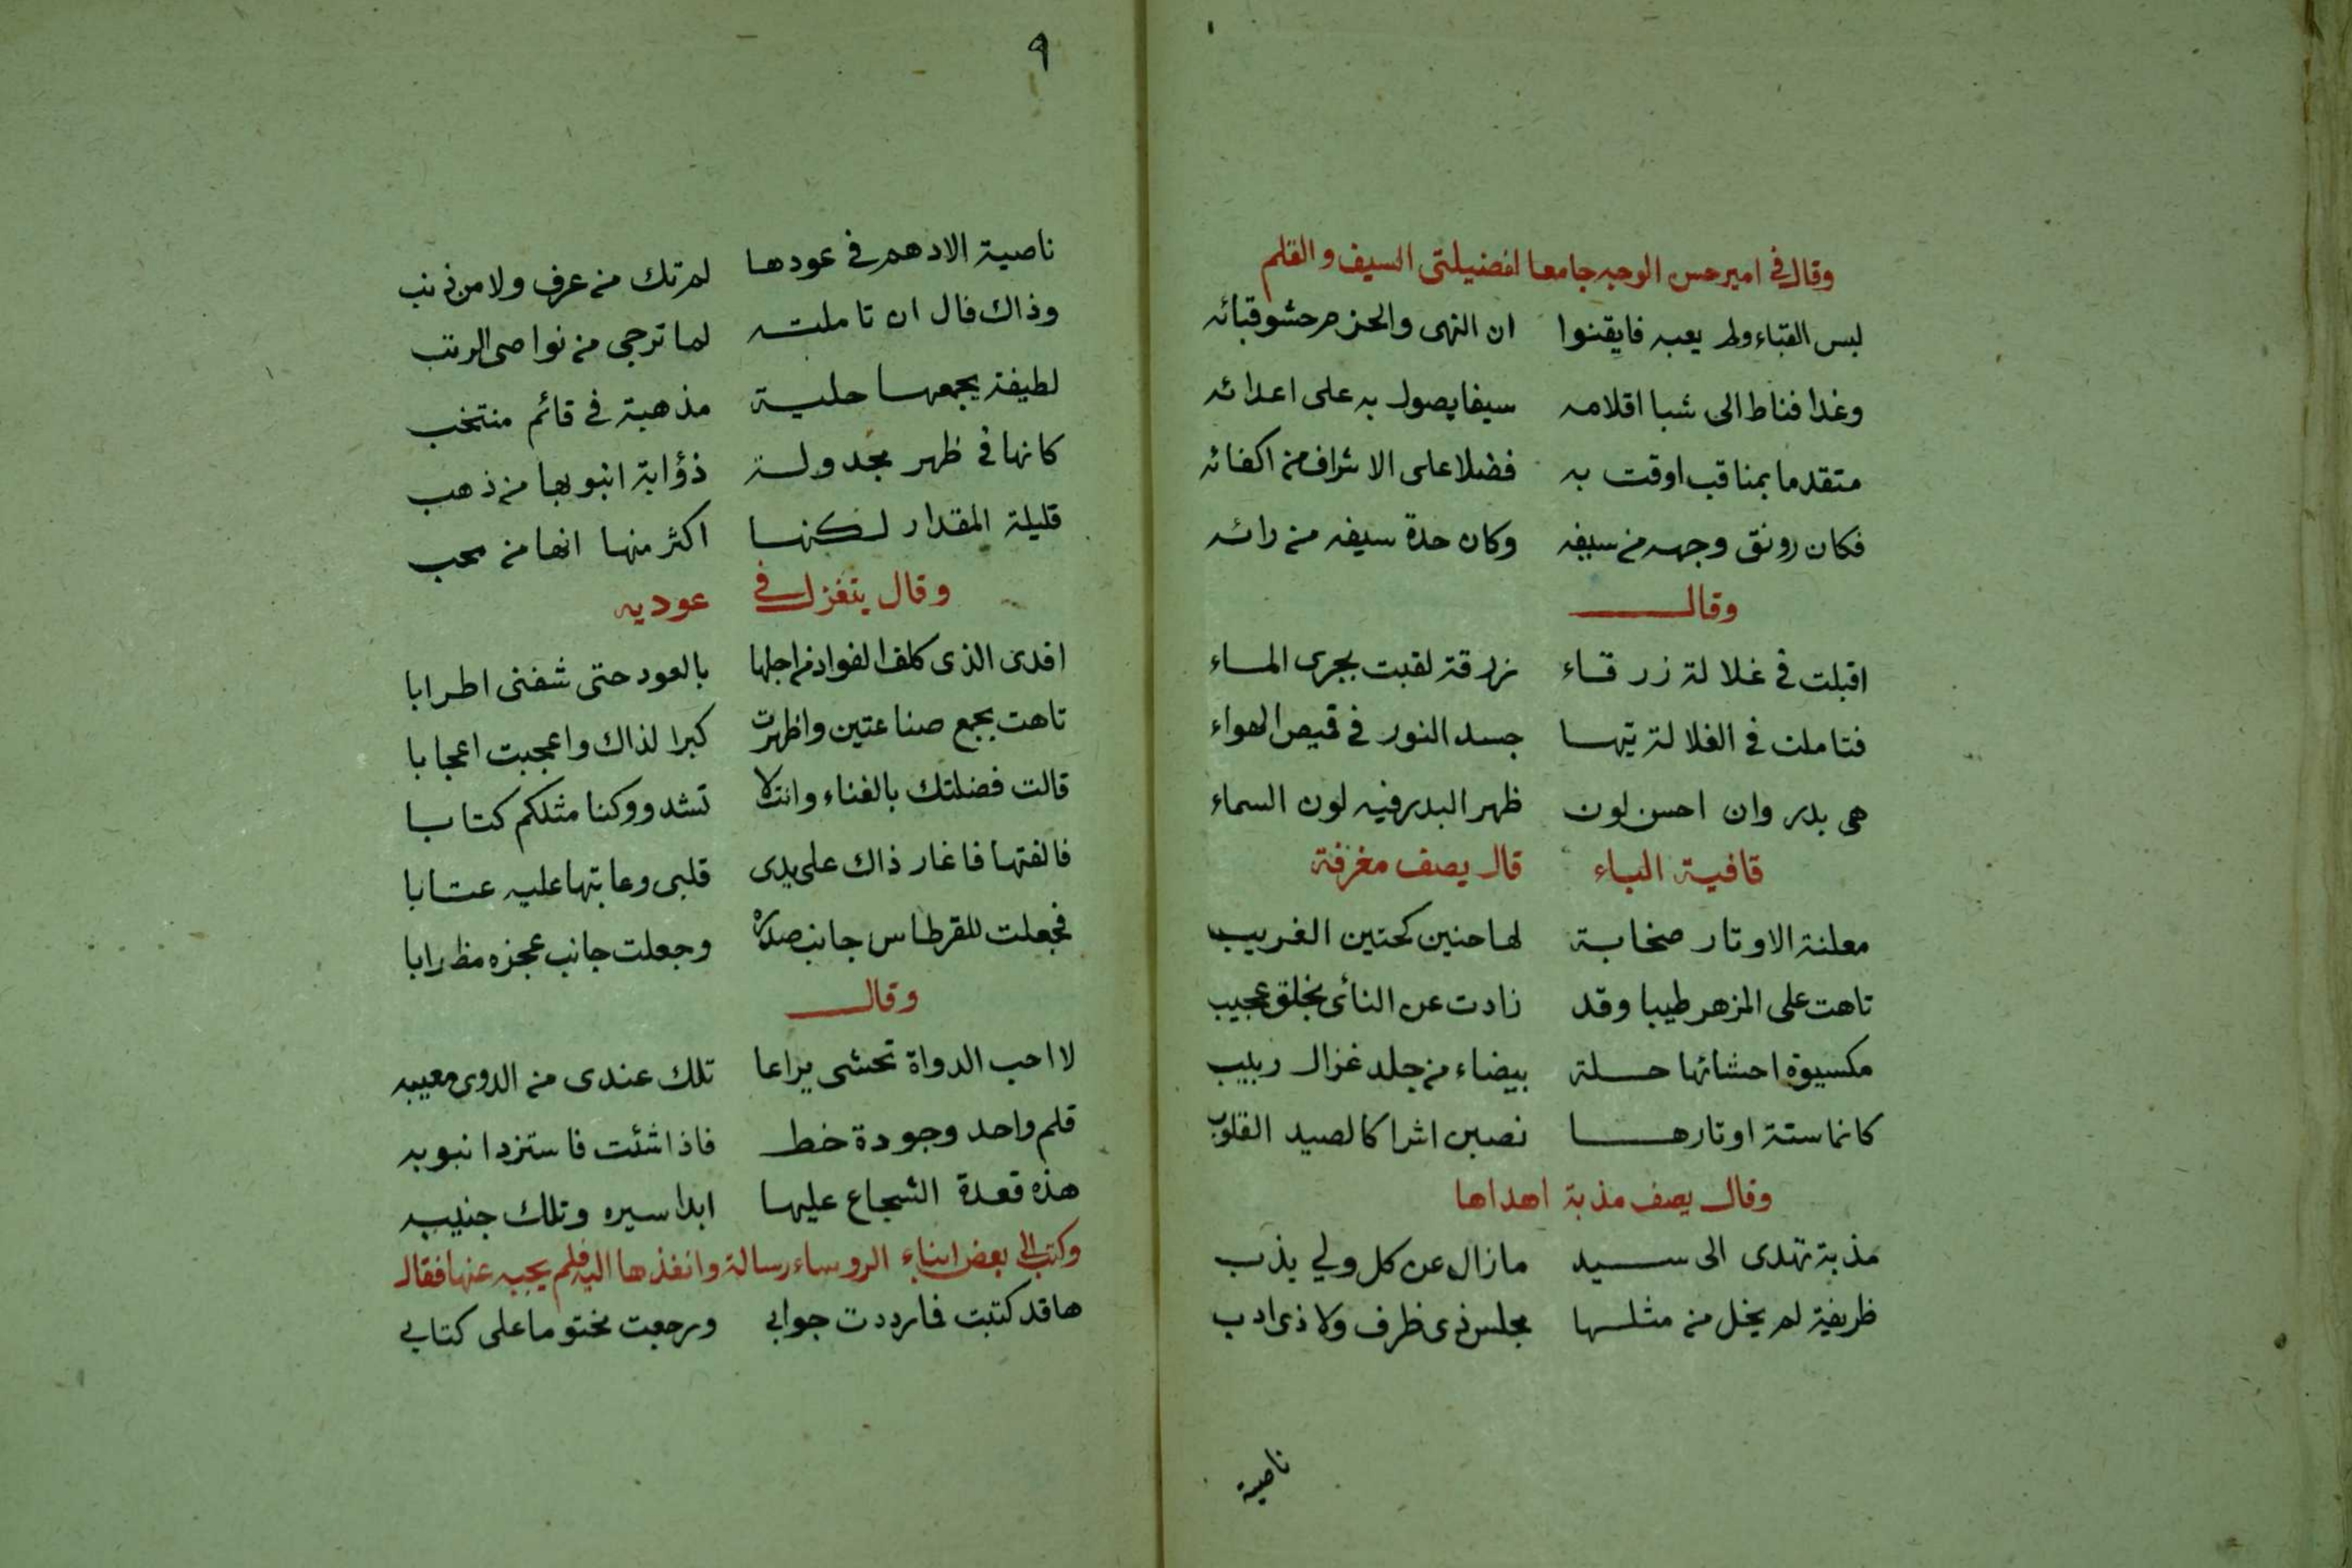 وقال في امير حسن الوجه جامعا لفضيلتى السيف والقلم
لبس القباء ولم يعبه فايقنوا ان النهى والحزم حشو قبائه
وغدا فناط الى شبا اقلامه سيفا يصول به على اعدائه
متقدما بمناقب اوفت به فضلا على الاشراف من اكفائه
فكان رونق وجهه من سيفه وكان حدة سيفه من رائه
وقال
اقبلت في غلالة زرقاء زرقة لقبت بجرى الماء
فتاملت في الغلالة تيها جسد النور في قميص الهواء
هى بدر وان احسن لون ظهر البدر فيه لون السماء
قافية الباء قال يصف مغزفة
معلنة الاوتار صخابة لها حنين كحنين الغريب
تاهت على المزهر طيبا وقد زادت عن النائى بخلق عجيب
مكسيوة احشائها حلة بيضاء من جلد غزال ربيب
كانما ستة اوتارها نصبن اشراكا لصيد القلوب
وقال يصف مذبة اهداها
مذبة تهدى الى سيد ما زال عن كل ولي يذب
ظريفة لم يخل من مثلها مجلس ذى ظرف ولا ذى ادب
ناصية
٩
ناصية الادهم في عودها لم تك من عرف ولا من ذنب
وذاك فال ان تاملته لما ترجى من نواصى الرتب
لطيفة يجمعها حلية مذهبة في قائم منتخب
كانها في ظهر مجدولة ذؤابة انبوبها من ذهب
قليلة المقدار لكنها اكثر منها انها من محب
وقال يتغزل في عوديه
افدى الذى كلف الفواد من اجلها بالعود حتى شفنى اطرابا
تاهت بجمع صناعتين واظهرت كبرا لذاك واعجبت اعجابا
قالت فضلتك بالغناء وانت لا تشدو وكنا مثلكم كتابا
فالفتها فاغار ذاك على يدى قلبى وعابتها عليه عتابا
فجعلت للقرطاس جانب صدره وجعلت جانب عجزه مظرابا
وقال
لا احب الدواة تحشى يراعا تلك عندى من الدوى معيبه
قلم واحد وجودة خط فاذا شئت فاستزد انبوبه
هذه قعدة الشجاع عليها ابدا سيره وتلك جنيبه
وكتب الى بعض ابناء الروساء رسالة وانفذها اليه فلم يجبه عنها فقال
ها قد كتبت فارددت جوابي ورجعت مختوما على كتابي